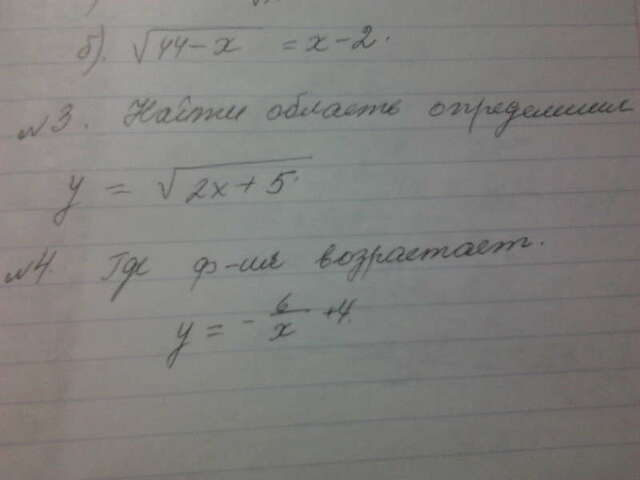 б). √44-x = x-2.
№3. Найти область определения
y = √2x+5
№4. Где ф-ия возрастает.
y = - 6/x +4.